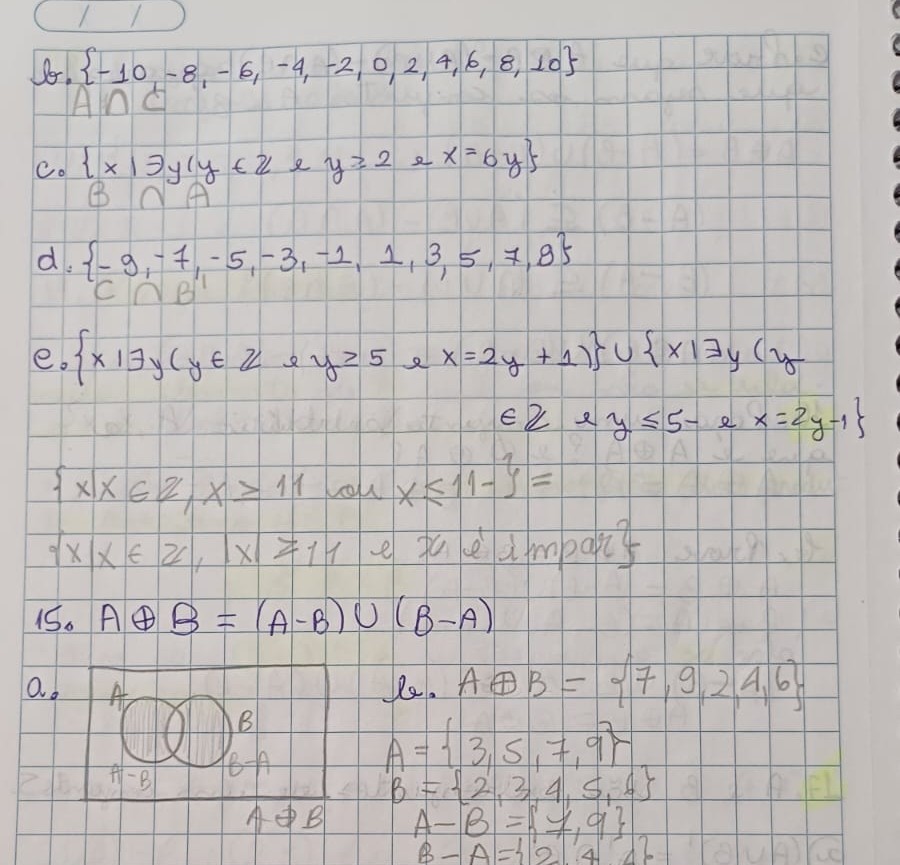 b. {-10, -8, -6, -4, -2, 0, 2, 4, 6, 8, 10}
A ∩ C
c. {x | ∃y (y ∈ ℤ e y ≥ 2 e x = 6y}
B ∩ A
d. {-9, -7, -5, -3, -1, 1, 3, 5, 7, 9}
C ∩ B'
e. {x | ∃y (y ∈ ℤ e y ≥ 5 e x = 2y + 1)} ∪ {x | ∃y (y
∈ ℤ e y ≤ 5- e x = 2y-1}
{x | x ∈ ℤ, x ≥ 11 ou x ≤ 11-} =
{x | x ∈ ℤ, |x| ≥ 11 e x é ímpar}
15. A ⊕ B = (A-B) ∪ (B-A)
a.
A
B
A-B
B-A
A ⊕ B
b. A ⊕ B = {7, 9, 2, 4, 6}
A = {3, 5, 7, 9}
B = {2, 3, 4, 5, 6}
A-B = {7, 9}
B-A = {2, 4,